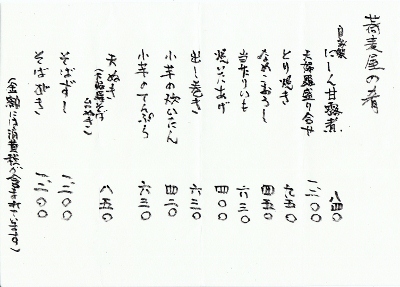 蕎麦屋の肴
自家製
にしん甘露煮 八四〇
天婦羅盛り合せ 一、二〇〇
とり焼き 九五〇
なめこおろし 四五〇
当たりいも 六三〇
焼いたあげ 四〇〇
出し巻き 六三〇
小芋の炊いたん 四二〇
小芋のてんぷら 六三〇
天ぬき 八五〇
(天婦羅そば
台ぬき)
そばずし 一、二〇〇
そばがき 一、二〇〇
(金額には消費税が含まれています)